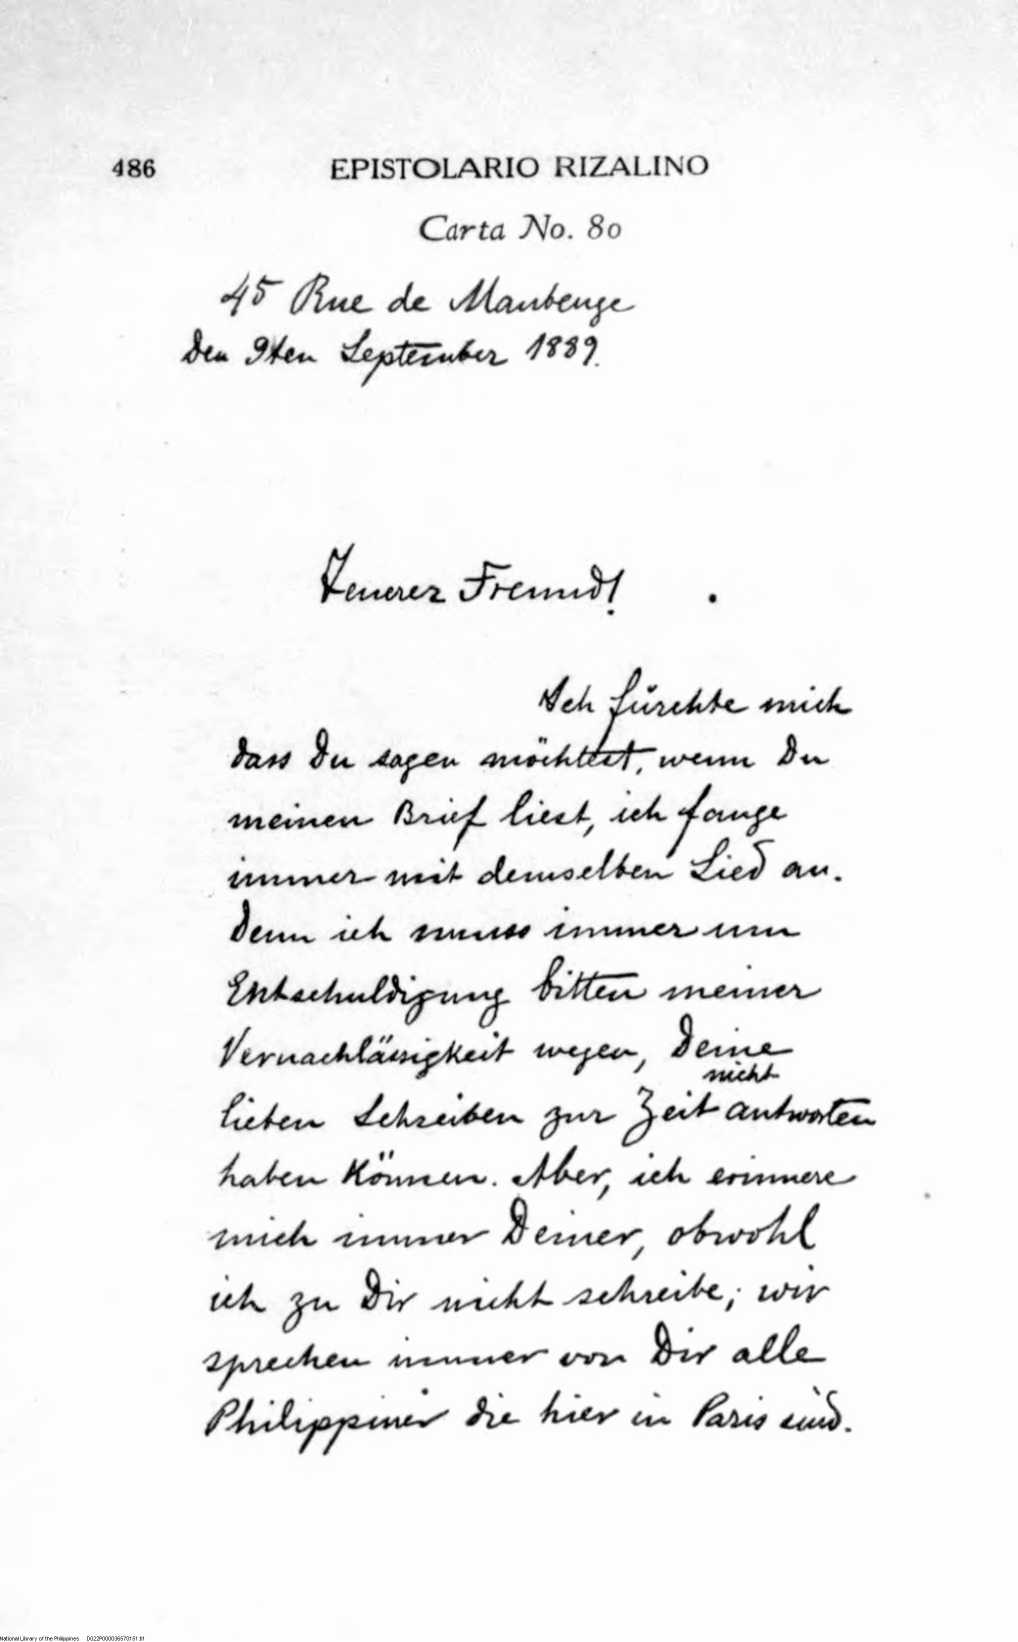 486 EPISTOLARIO RIZALINO
Carta No. 80
45 Rue de Maubeuge
Den 9ten September 1889.
Teuerer Freund!
Ich fürchte mich
dass Du sagen möchtest, wenn Du
meinen Brief liest, ich fange
immer mit demselben Lied an.
Denn ich muss immer um
Entschuldigung bitten meiner
Vernachlässigkeit wegen, Deine
nicht
lieben Schreiben zur Zeit antworten
haben können. Aber, ich erinnere
mich immer Deiner, obwohl
ich zu Dir nicht schreibe; wir
sprechen immer von Dir alle
Philippiner die hier in Paris sind.
National Library of the Philippines